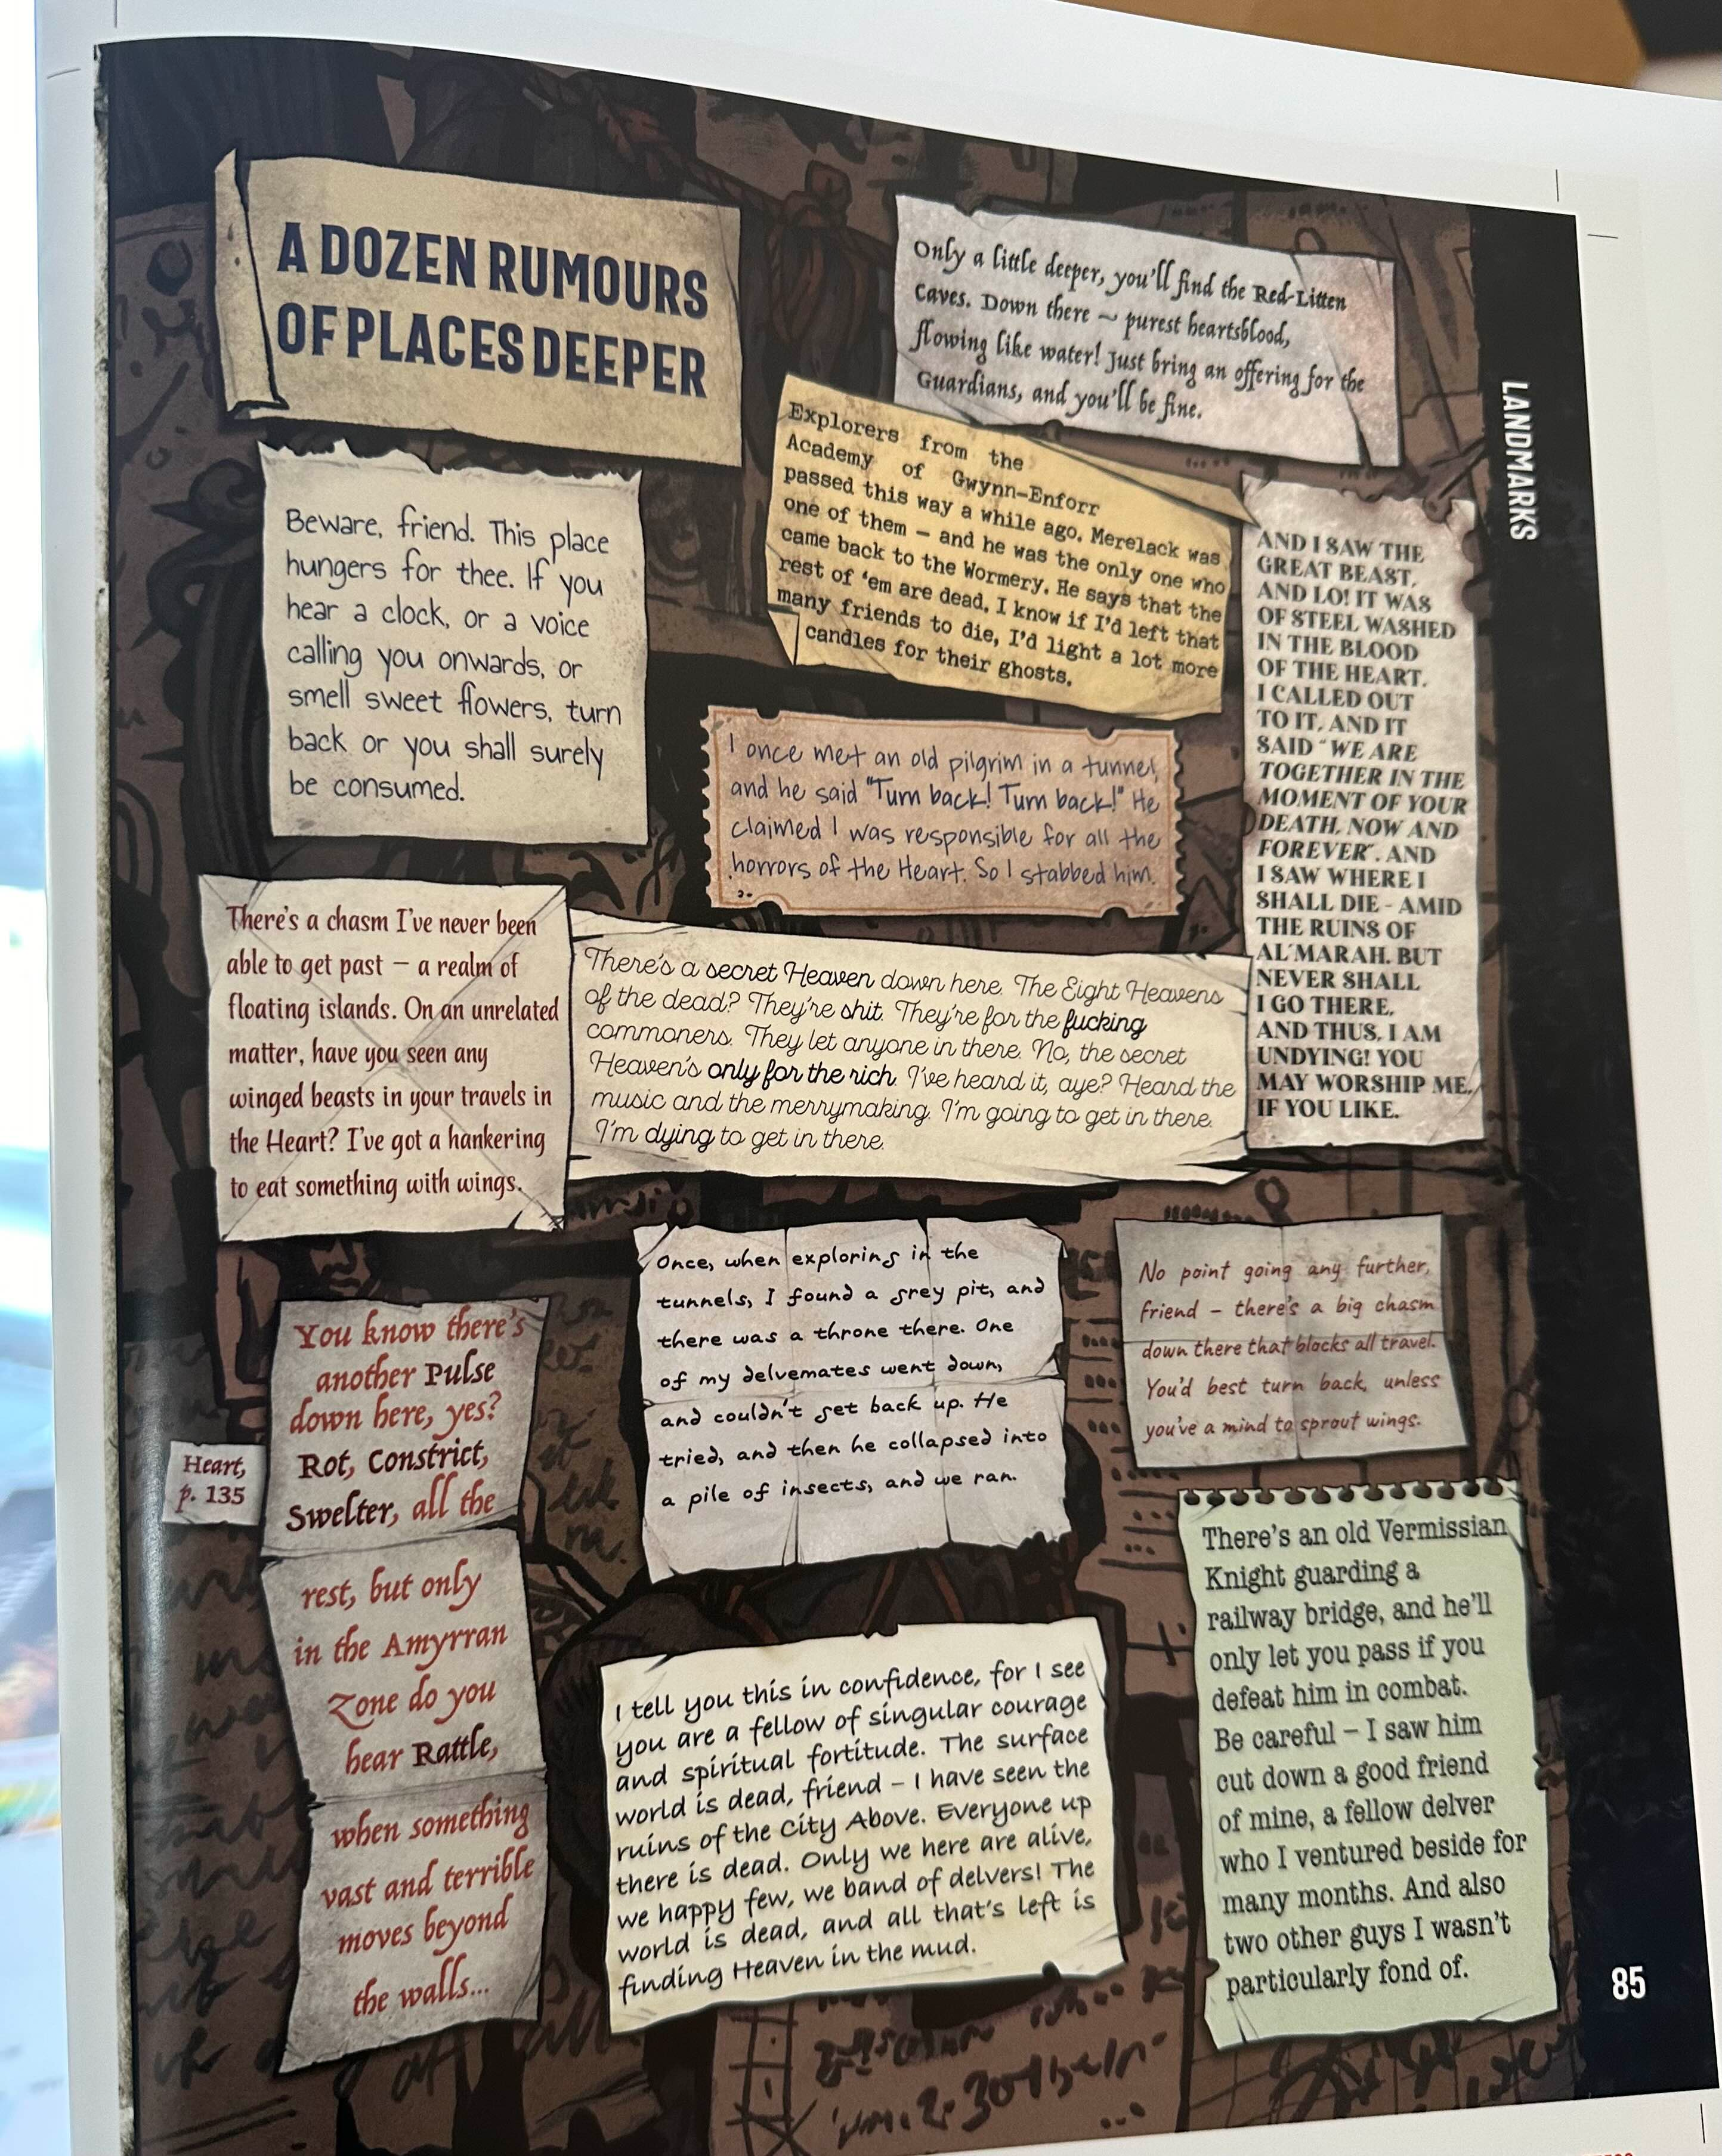 A DOZEN RUMOURS
OF PLACES DEEPER
Only a little deeper, you'll find the Red-Litten
Caves. Down there – purest heartsblood,
flowing like water! Just bring an offering for the
Guardians, and you'll be fine.
LANDMARKS
Explorers from the
Academy of Gwynn-Enforr
passed this way a while ago. Merelack was
one of them – and he was the only one who
came back to the Wormery. He says that the
rest of 'em are dead. I know if I'd left that
many friends to die, I'd light a lot more
candles for their ghosts.
Beware, friend. This place
hungers for thee. If you
hear a clock, or a voice
calling you onwards, or
smell sweet flowers, turn
back or you shall surely
be consumed.
AND I SAW THE
GREAT BEAST,
AND LO! IT WAS
OF STEEL WASHED
IN THE BLOOD
OF THE HEART.
I CALLED OUT
TO IT, AND IT
SAID "WE ARE
TOGETHER IN THE
MOMENT OF YOUR
DEATH, NOW AND
FOREVER". AND
I SAW WHERE I
SHALL DIE – AMID
THE RUINS OF
AL'MARAH. BUT
NEVER SHALL
I GO THERE,
AND THUS, I AM
UNDYING! YOU
MAY WORSHIP ME,
IF YOU LIKE.
I once met an old pilgrim in a tunnel,
and he said "Turn back! Turn back!" He
claimed I was responsible for all the
horrors of the Heart. So I stabbed him.
There's a chasm I've never been
able to get past – a realm of
floating islands. On an unrelated
matter, have you seen any
winged beasts in your travels in
the Heart? I've got a hankering
to eat something with wings.
There's a secret Heaven down here. The Eight Heavens
of the dead? They're shit. They're for the fucking
commoners. They let anyone in there. No, the secret
Heaven's only for the rich. I've heard it, aye? Heard the
music and the merrymaking. I'm going to get in there.
I'm dying to get in there.
Once, when exploring in the
tunnels, I found a grey pit, and
there was a throne there. One
of my delvemates went down,
and couldn't get back up. He
tried, and then he collapsed into
a pile of insects, and we ran.
No point going any further,
friend – there's a big chasm
down there that blocks all travel.
You'd best turn back, unless
you've a mind to sprout wings.
You know there's
another Pulse
down here, yes?
Rot, Constrict,
Swelter, all the
rest, but only
in the Amyrran
Zone do you
hear Rattle,
when something
vast and terrible
moves beyond
the walls...
Heart,
p. 135
I tell you this in confidence, for I see
you are a fellow of singular courage
and spiritual fortitude. The surface
world is dead, friend – I have seen the
ruins of the City Above. Everyone up
there is dead. Only we here are alive,
we happy few, we band of delvers! The
world is dead, and all that's left is
finding Heaven in the mud.
There's an old Vermissian
Knight guarding a
railway bridge, and he'll
only let you pass if you
defeat him in combat.
Be careful – I saw him
cut down a good friend
of mine, a fellow delver
who I ventured beside for
many months. And also
two other guys I wasn't
particularly fond of.
85